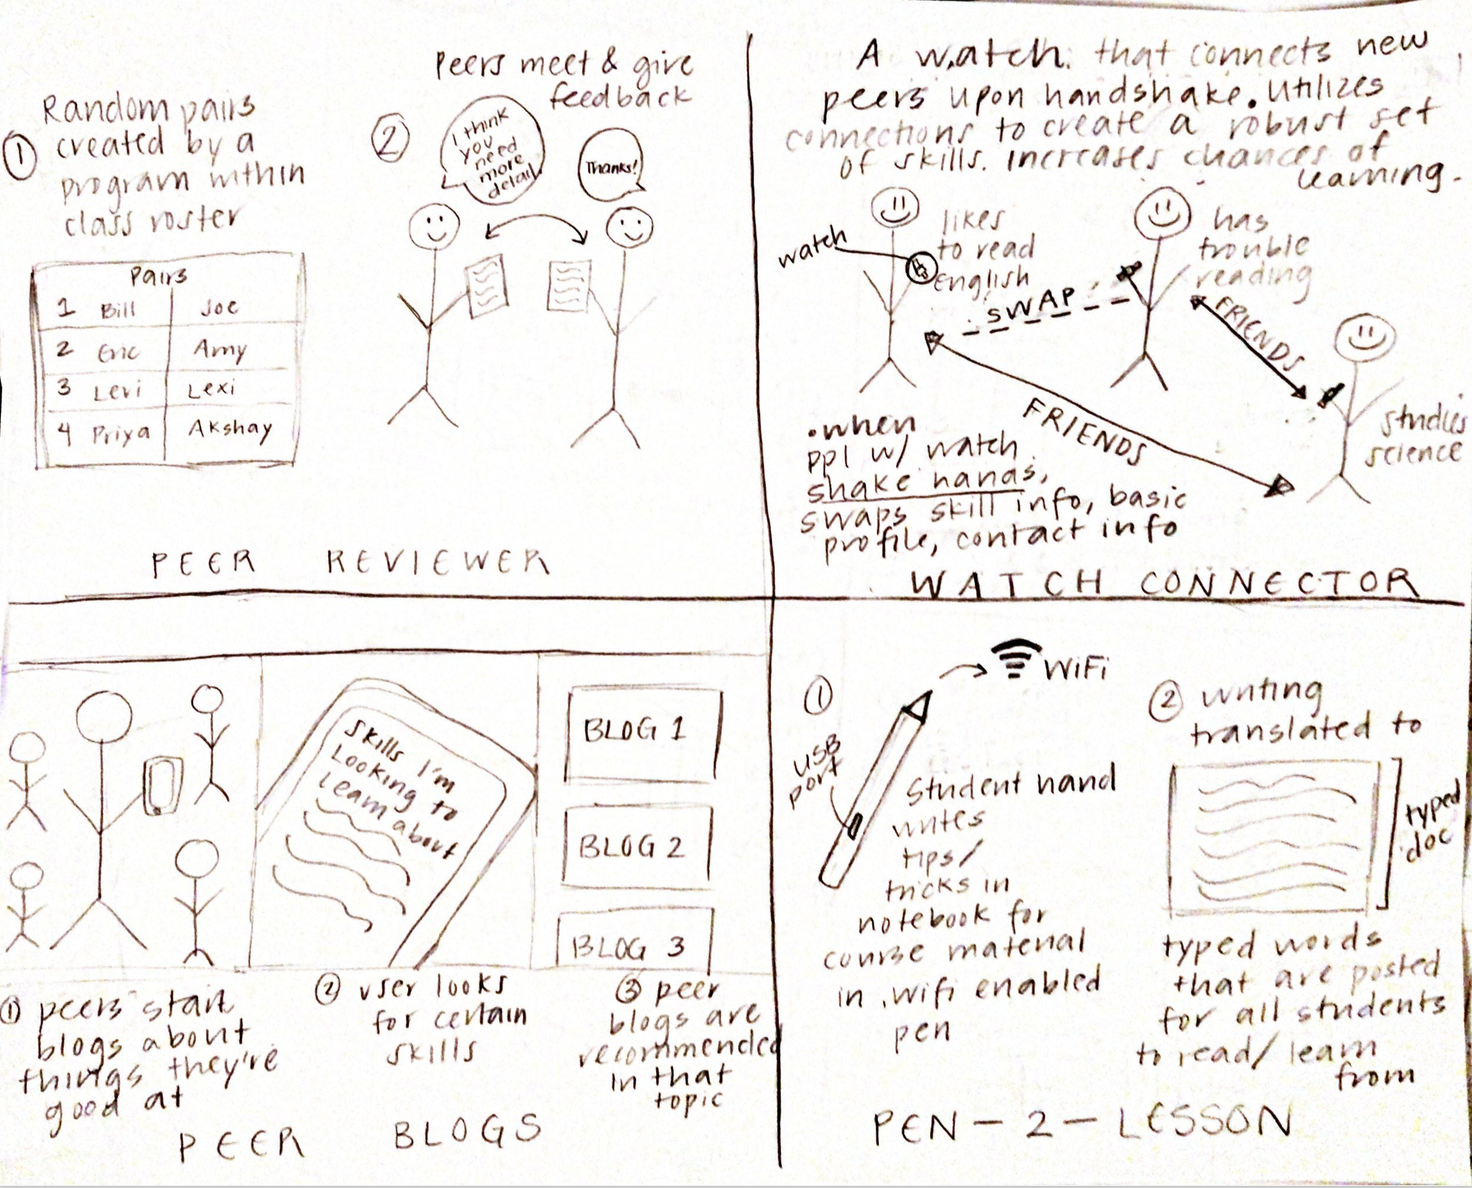 Random pairs
① created by a
program within
class roster
Pairs
1 Bill Joe
2 Eric Amy
3 Levi Lexi
4 Priya Akshay
Peers meet & give
feedback
②
I think
you
need
more
detail.
Thanks!
PEER REVIEWER
A watch that connects new
peers upon handshake. Utilizes
connections to create a robust set
of skills. increases chances of
learning.
watch
likes
to read
English
SWAP
has
trouble
reading
FRIENDS
FRIENDS
studies
science
• when
ppl w/ watch
shake hands,
swaps skill info, basic
profile, contact info
WATCH CONNECTOR
Skills I'm
Looking to
Learn about
BLOG 1
BLOG 2
BLOG 3
① peers start
blogs about
things they're
good at
② user looks
for certain
skills
③ peer
blogs are
recommended
in that
topic
PEER BLOGS
①
WiFi
USB
port
Student hand
writes
tips/
tricks in
notebook for
course material
in wifi enabled
pen
② writing
translated to
typed
doc
typed words
that are posted
for all students
to read/learn
from
PEN-2-LESSON